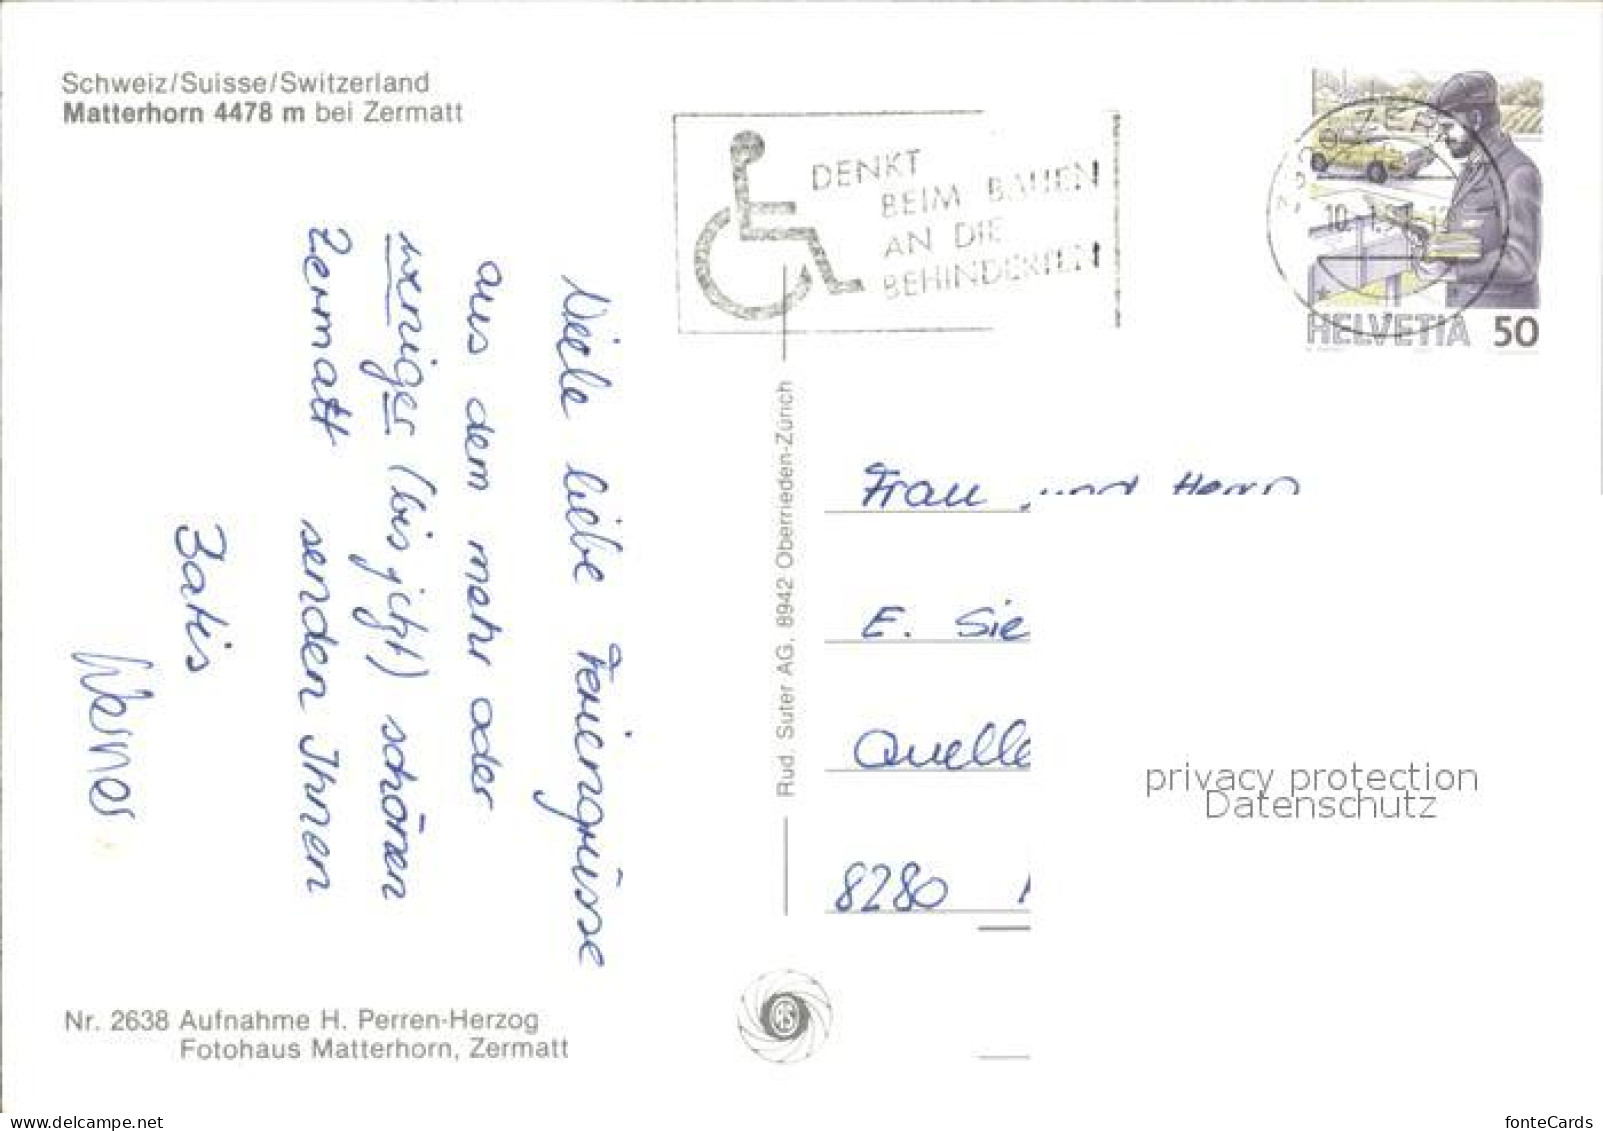 Schweiz/Suisse/Switzerland
Matterhorn 4478 m bei Zermatt
DENKT
BEIM BAUEN
AN DIE
BEHINDERTEN
HELVETIA 50
Viele liebe Feriengrüsse
aus dem mehr oder
weniger (bis jetzt) schönen
Zermatt senden Ihnen
Rud. Suter AG, 8942 Oberrieden-Zürich
Frau und Herrn
E. Sie
Quelle
8280
privacy protection
Datenschutz
Nr. 2638 Aufnahme H. Perren-Herzog
Fotohaus Matterhorn, Zermatt
fonteCards